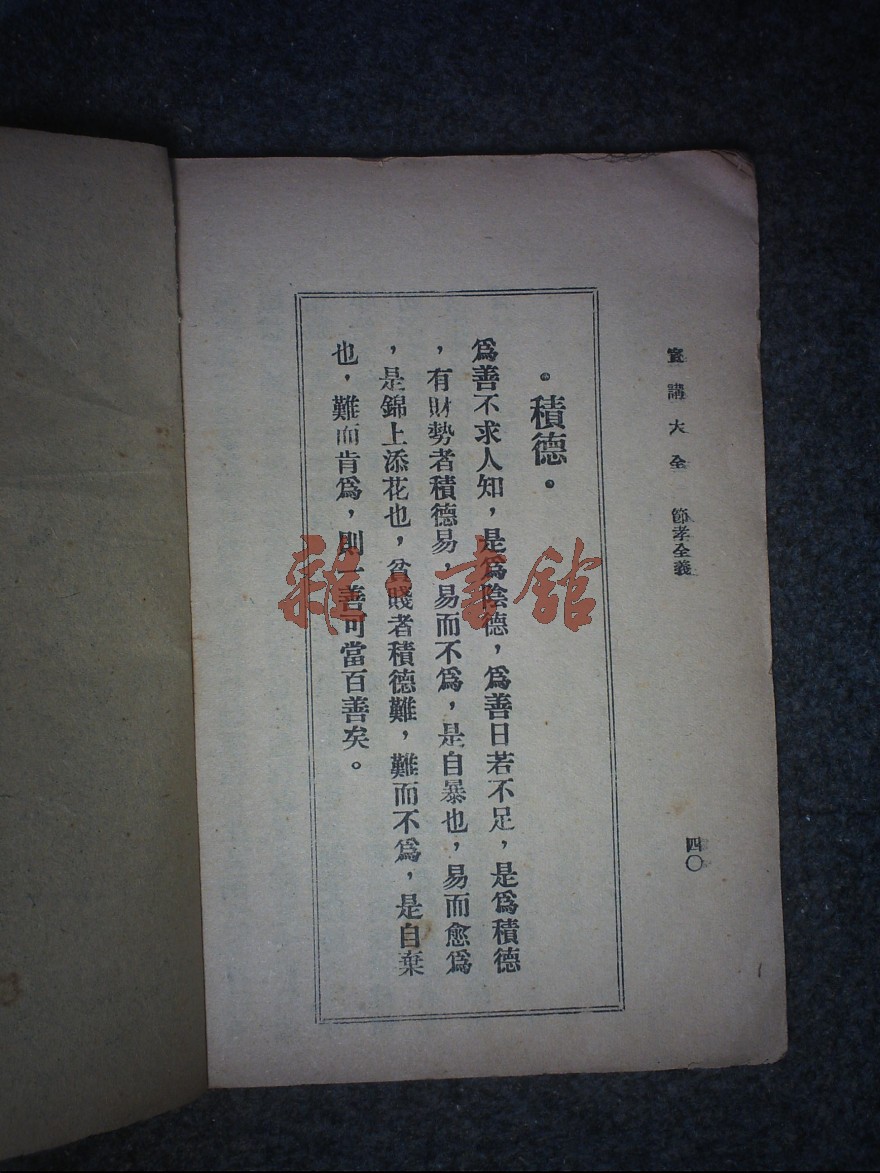 宣講大全 節孝全義
四〇
。積德。
爲善不求人知，是爲陰德，爲善日若不足，是爲積德
，有財勢者積德易，易而不爲，是自暴也，易而愈爲
，是錦上添花也，貧賤者積德難，難而不爲，是自棄
也，難而肯爲，則一善可當百善矣。
雜·書館